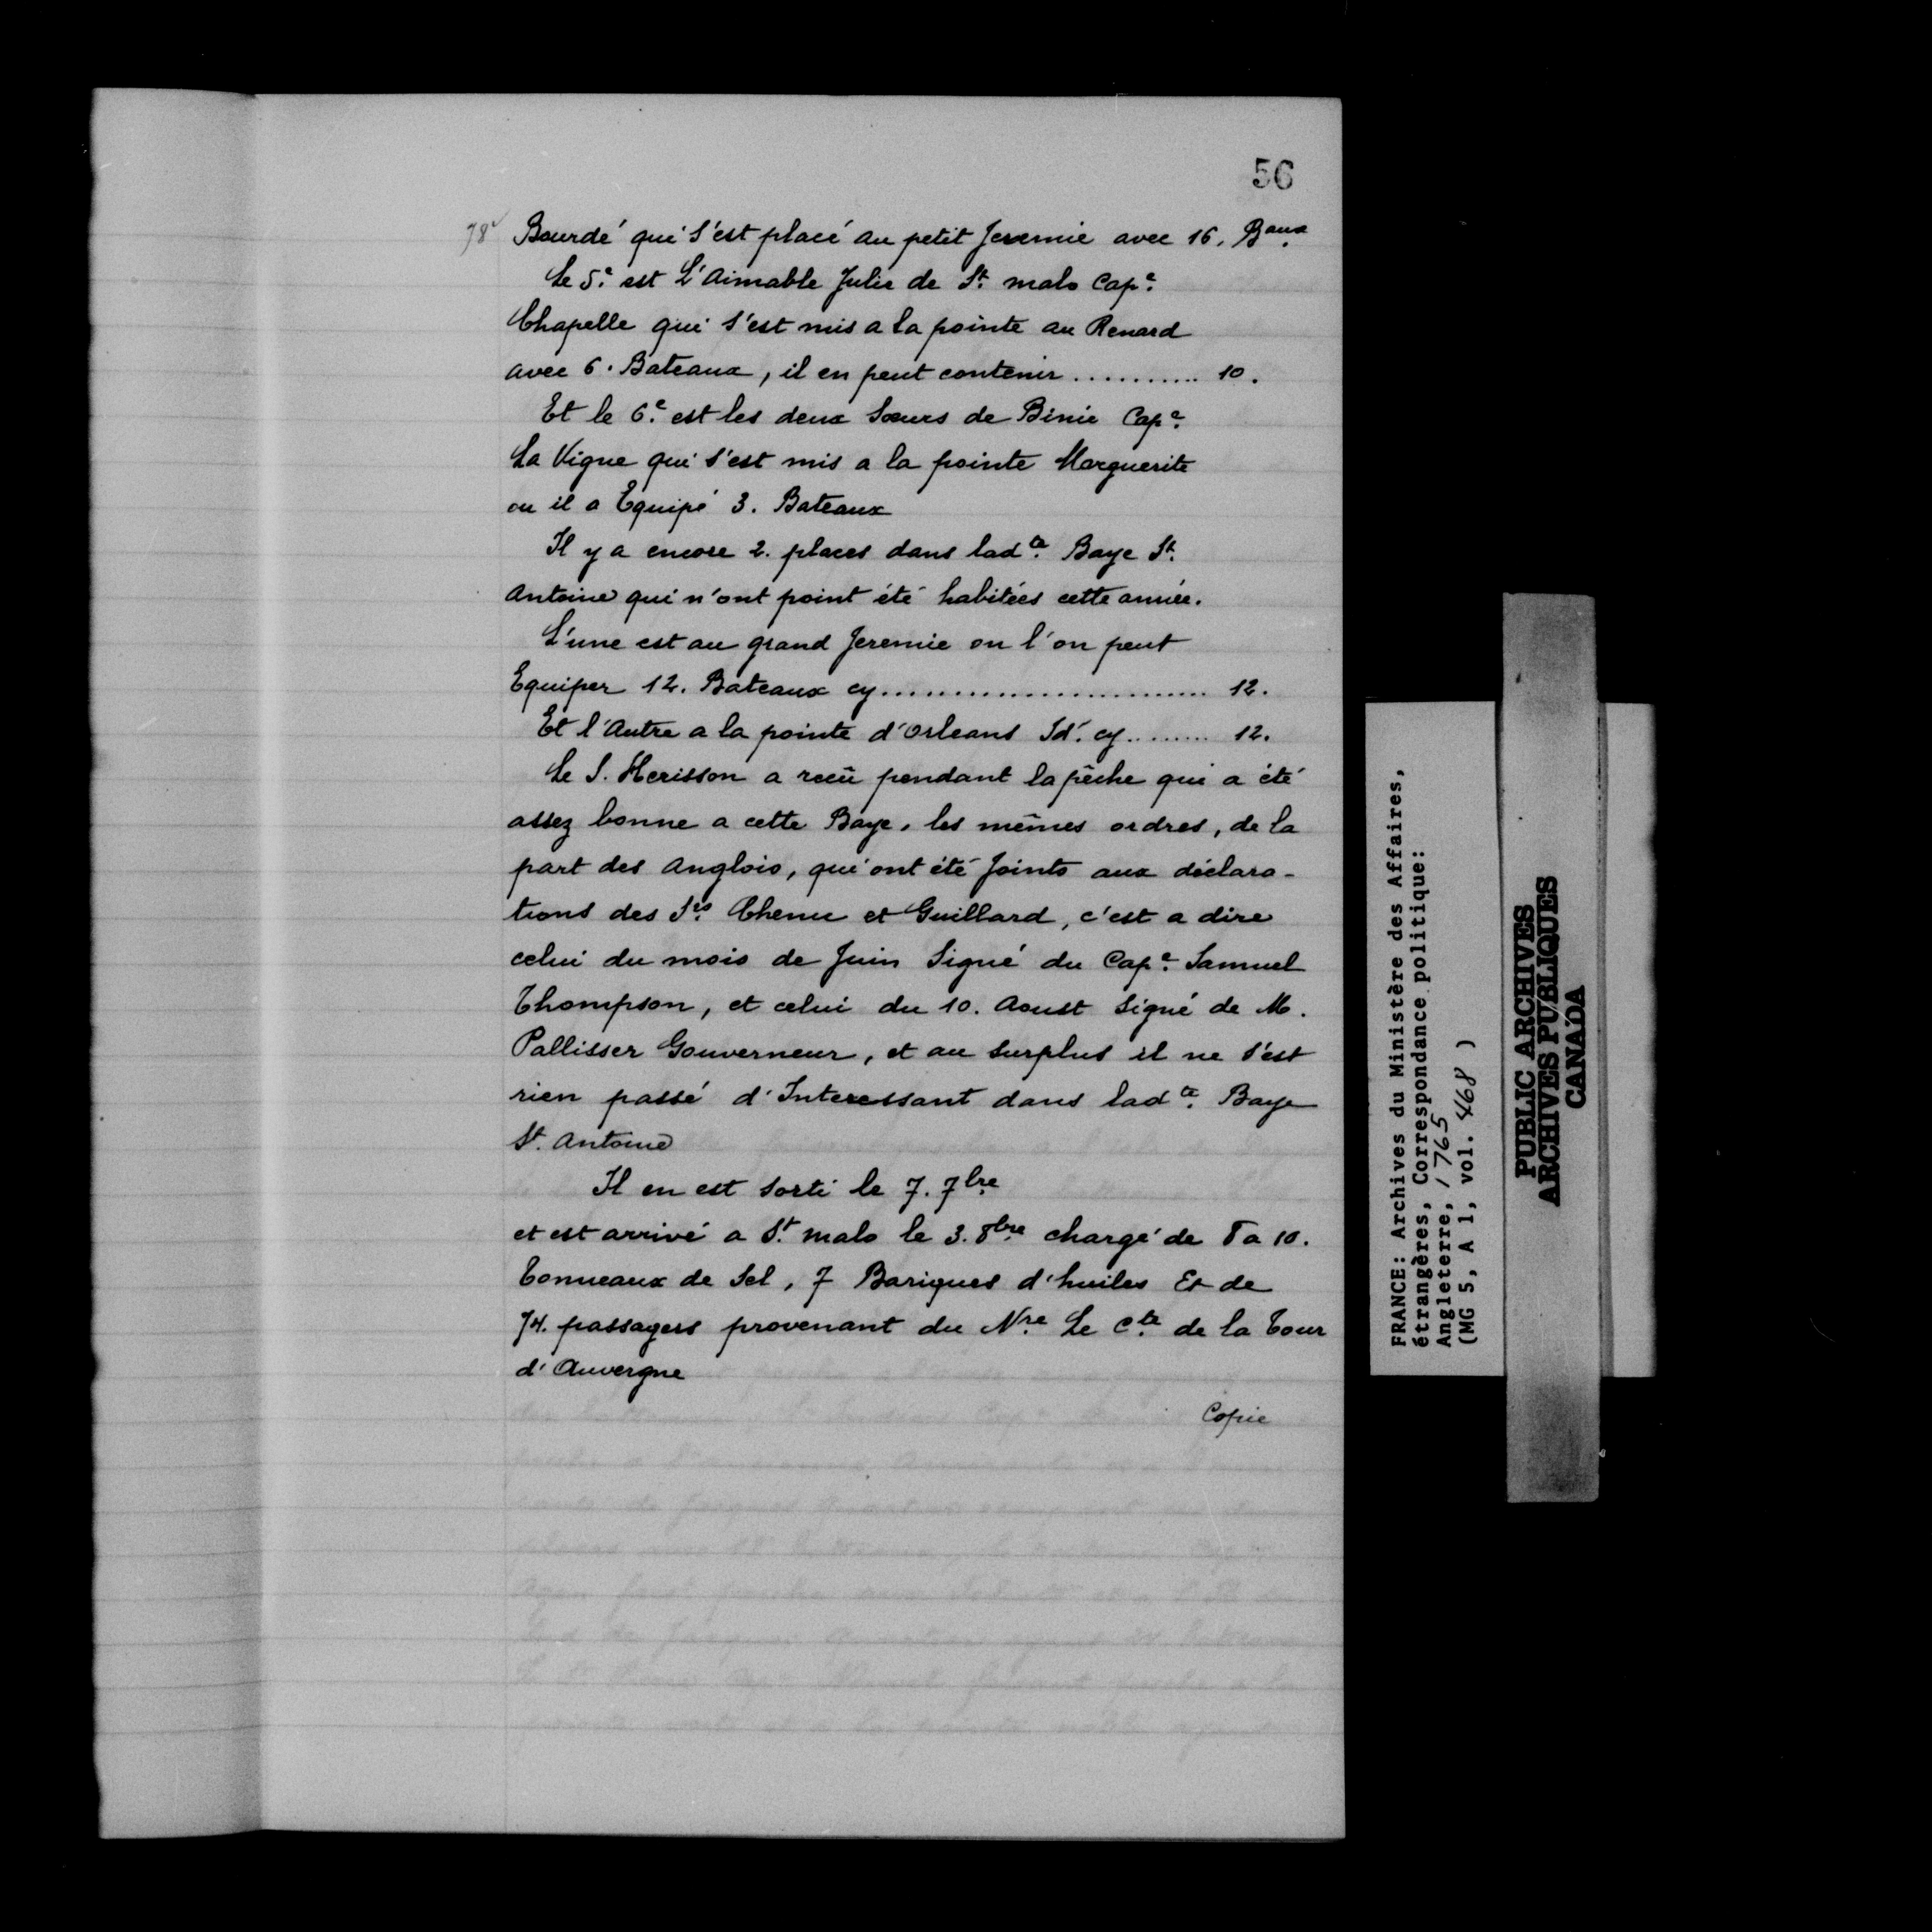 56
78v Bourdé qui s'est placé au petit Jeremie avec 16. Baux
Le 5.e est L'Aimable Julie de St. malo Cap.e
Chapelle qui s'est mis a la pointe au Renard
avec 6. Bateaux, il en peut contenir ........... 10.
Et le 6.e est les deux Sœurs de Binic Cap.e
La Vigne qui s'est mis a la pointe Marguerite
ou il a Equipé 3. Bateaux
Il y a encore 2. places dans lad.te Baye St.
Antoine qui n'ont point été habitées cette année.
L'une est au grand Jeremie ou l'on peut
Equiper 12. Bateaux cy........................... 12.
Et l'Autre a la pointe d'Orleans Id. cy......... 12.
Le S. Herisson a reçu pendant la pêche qui a été
assez bonne a cette Baye, les mêmes ordres, de la
part des Anglois, qui ont été Joints aux déclara-
tions des Srs. Chenu et Guillard, c'est a dire
celui du mois de Juin Signé du Cap.e Samuel
Thompson, et celui du 10. Aoust Signé de M.
Pallisser Gouverneur, et au surplus il ne s'est
rien passé d'Interessant dans lad.te Baye
St. Antoine
Il en est sorti le 7. 7bre
et est arrivé a St. malo le 3. 8bre chargé de 8 a 10.
Tonneaux de Sel, 7 Bariques d'huiles Et de
74. passagers provenant du N.re Le C.te de la Tour
d'Auvergne
Copie
FRANCE: Archives du Ministère des Affaires,
étrangères, Correspondance politique:
Angleterre, 1765
(MG 5, A 1, vol. 468 )
PUBLIC ARCHIVES
ARCHIVES PUBLIQUES
CANADA